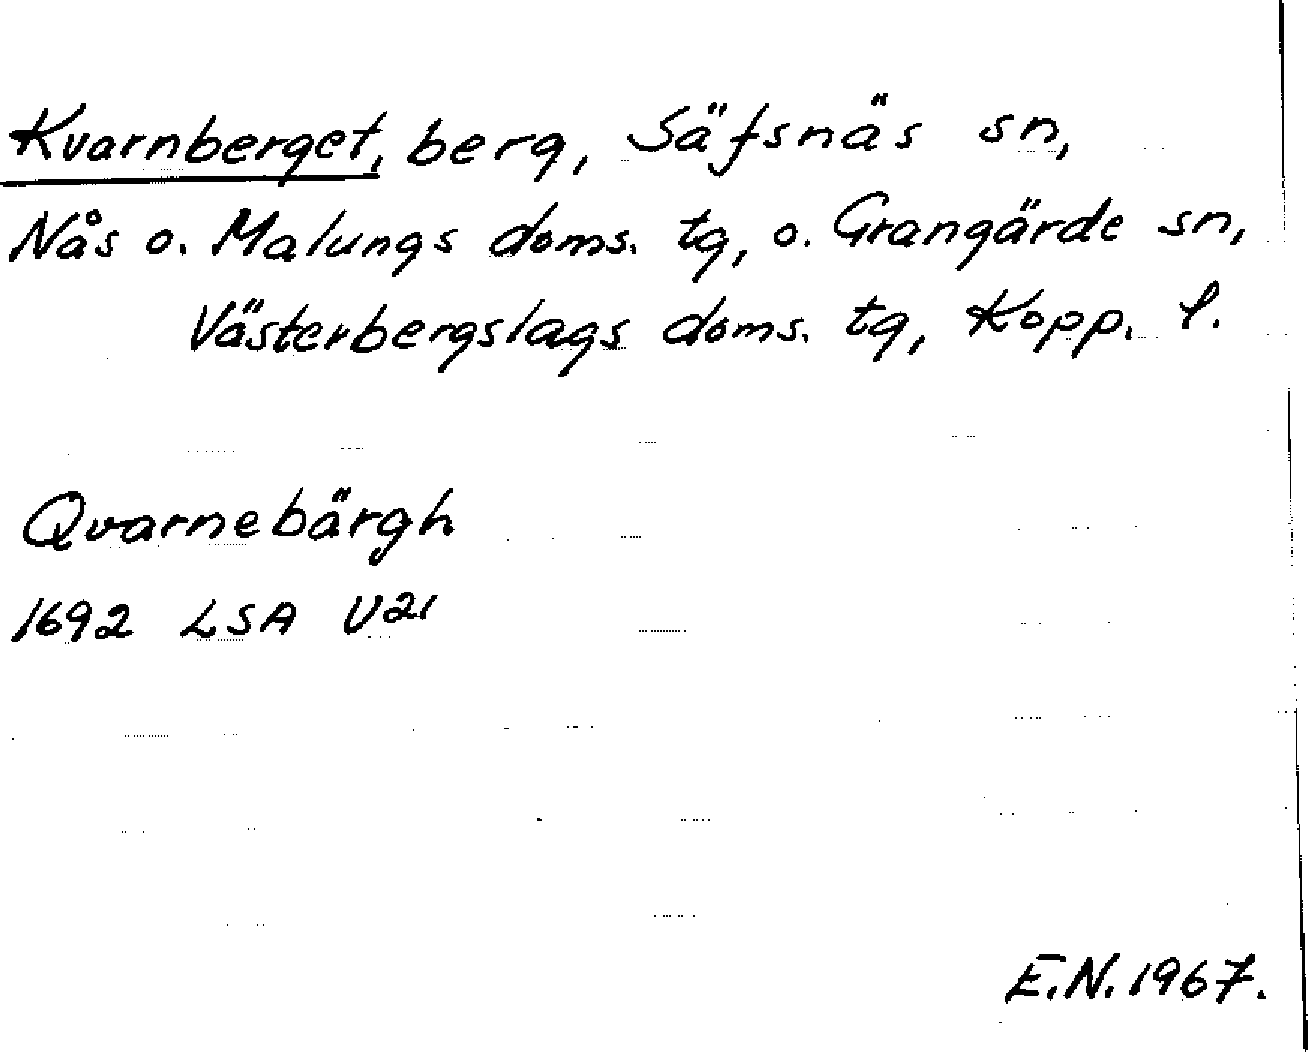 Kvarnberget, berg, Säfsnäs sn,
Nås o. Malungs doms. tg, o. Grangärde sn,
Västerbergslags doms. tg, Kopp. l.
Qvarnebärgh
1692 LSA U21
E.N. 1967.